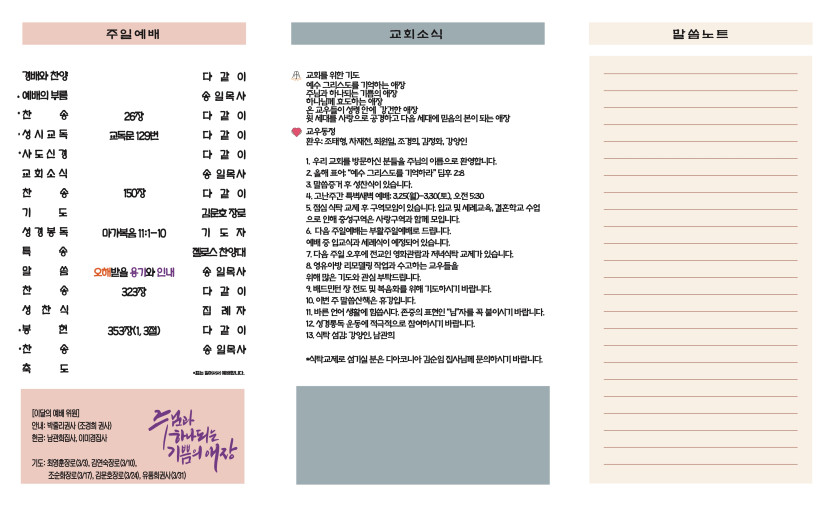 주일예배
경배와 찬양 다 같 이
·예배의 부름 송 일 목 사
·찬 송 26장 다 같 이
·성 시 교 독 교독문 129번 다 같 이
·사 도 신 경 다 같 이
교 회 소 식 송 일 목 사
찬 송 150장 다 같 이
기 도 김문호 장로
성 경 봉 독 마가복음 11:1-10 기 도 자
특 송 젤로스 찬양대
말 씀 오해받을 용기와 인내 송 일 목 사
찬 송 323장 다 같 이
성 찬 식 집 례 자
·봉 헌 353장(1, 3절) 다 같 이
·찬 송 송 일 목 사
축 도
[이달의 예배 위원]
안내: 박줄리권사 (조경희 권사)
헌금: 남관희집사, 이미경집사
기도: 최영훈장로(3/3), 김연숙장로(3/10),
조순화장로(3/17), 김문호장로(3/24), 유풍희권사(3/31)
주님과
하나되는
기쁨의 애장
교회소식
교회를 위한 기도
예수 그리스도를 기억하는 애장
주님과 하나되는 기쁨의 애장
하나님께 효도하는 애장
온 교우들이 성령 안에 강건한 애장
윗 세대를 사랑으로 공경하고 다음 세대에 믿음의 본이 되는 애장
교우동정
환우: 조태형, 차재천, 최원일, 조경희, 김정화, 강양인
1. 우리 교회를 방문하신 분들을 주님의 이름으로 환영합니다.
2. 올해 표어: "예수 그리스도를 기억하라" 딤후 2:8
3. 말씀증거 후 성찬식이 있습니다.
4. 고난주간 특별새벽 예배: 3.25(월)-3.30(토), 오전 5:30
5. 점심 식탁 교제 후 구역모임이 있습니다. 입교 및 세례교육, 결혼학교 수업
으로 인해 충성구역은 사랑구역과 함께 모입니다.
6. 다음 주일예배는 부활주일예배로 드립니다.
예배 중 입교식과 세례식이 예정되어 있습니다.
7. 다음 주일 오후에 전교인 영화관람과 저녁식탁 교제가 있습니다.
8. 영유아방 리모델링 작업과 수고하는 교우들을
위해 많은 기도와 관심 부탁드립니다.
9. 배드민턴 장 전도 및 복음화를 위해 기도하시기 바랍니다.
10. 이번 주 말씀산책은 휴강입니다.
11. 바른 언어 생활에 힘씁시다. 존중의 표현인 "님"자를 꼭 붙이시기 바랍니다.
12. 성경통독 운동에 적극적으로 참여하시기 바랍니다.
13. 식탁 섬김: 강양인, 남관희
*식탁교제로 섬기실 분은 디아코니아 김순임 집사님께 문의하시기 바랍니다.
말씀노트